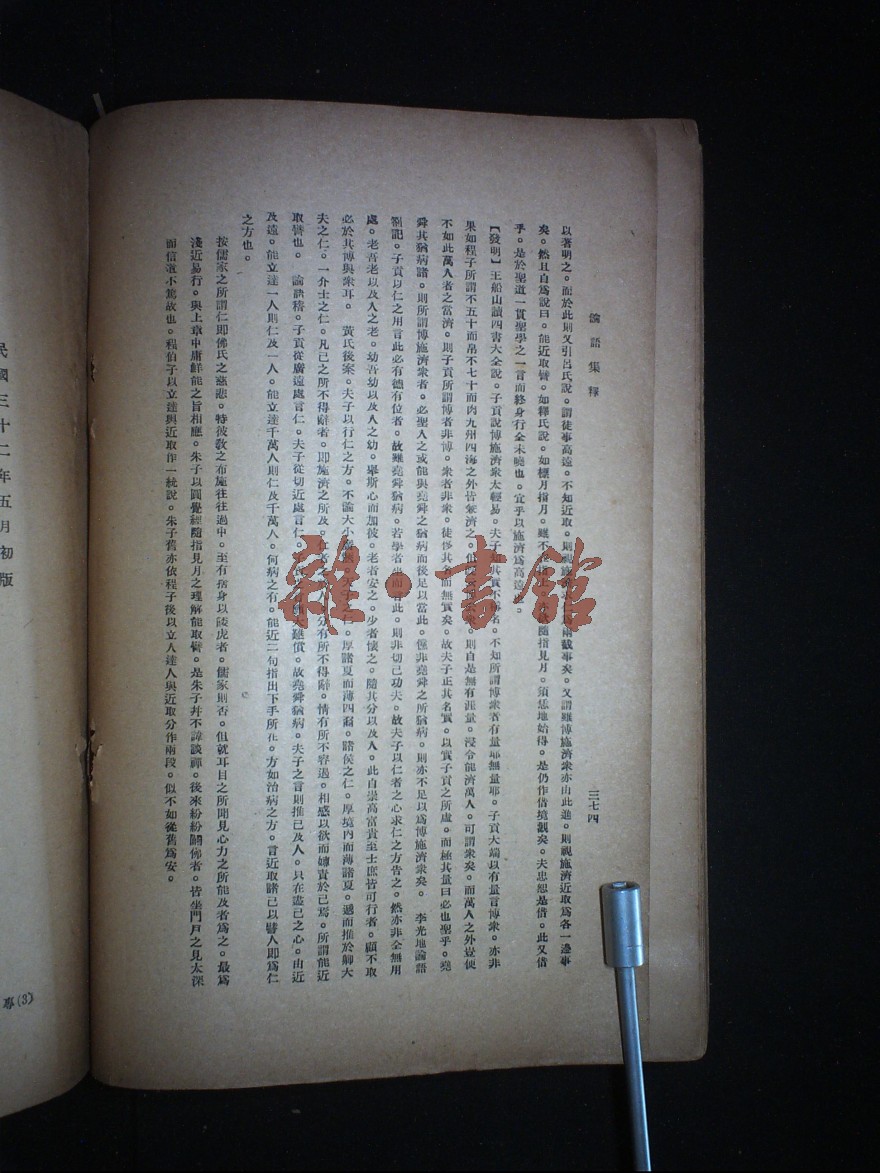 論語集釋
三七四
以著明之。而於此則又引呂氏說。謂徒事高遠。不知近取。則視施濟與仁為兩截事矣。又謂雖博施濟衆亦由此進。則視施濟近取為各一邊事
矣。然且自為說曰。能近取譬。如釋氏說。如標月指月。雖不隨指見月。須恁地始得。是仍作借境觀矣。夫忠恕是借。此又借
乎。是於聖道一貫聖學之一言而終身行全未曉也。宜乎以施濟為高遠也。
【發明】王船山讀四書大全說。子貢說博施濟衆太輕易。夫子知其實不名。不知所謂博衆者有量耶無量耶。子貢大端以有量言博衆。亦非
果如程子所謂不五十而帛不七十而肉九州四海之外皆兼濟之。但云博云衆。則自是無有涯量。浸令能濟萬人。可謂衆矣。而萬人之外豈便
不如此萬人者之當濟。則子貢所謂博者非博。衆者非衆。徒侈其名而無實矣。故夫子正其名實。以實子貢之所虛。而極其量曰必也聖乎。堯
舜其猶病諸。則所謂博施濟衆者。必聖人之或能與堯舜之猶病而後足以當此。儻非堯舜之所猶病。則亦不足以為博施濟衆矣。 李光地論語
劄記。子貢以仁之用言此必有德有位者。故雖堯舜猶病。若學者坐而言此。則非切己功夫。故夫子以仁者之心求仁之方告之。然亦非全無用
處。老吾老以及人之老。幼吾幼以及人之幼。舉斯心而加彼。老者安之。少者懷之。隨其分以及人。此自崇高富貴至士庶皆可行者。顧不取
必於其博與衆耳。 黃氏後案。夫子以行仁之方。不論大小廣狹。天子之仁。厚諸夏而薄四裔。諸侯之仁。厚境內而薄諸夏。遞而推於卿大
夫之仁。一介士之仁。凡己之所不得辭者。即施濟之所及。仁者之分有所不得辭。情有所不容遏。相感以欲而嫥責於己焉。所謂能近
取譬也。 論語稽。子貢從廣遠處言仁。夫子從切近處言仁。大難償。故堯舜猶病。夫子之言則推己及人。只在盡己之心。由近
及遠。能立達一人則仁及一人。能立達千萬人則仁及千萬人。何病之有。能近二句指出下手所在。方如治病之方。言近取諸己以譬人即為仁
之方也。
按儒家之所謂仁即佛氏之慈悲。特彼教之布施往往過中。至有捨身以餧虎者。儒家則否。但就耳目之所聞見心力之所能及者為之。最為
淺近易行。與上章中庸鮮能之旨相應。朱子以圓覺經隨指見月之理解能取譬。是朱子并不諱談禪。後來紛紛闢佛者。皆坐門戶之見太深
而信道不篤故也。程伯子以立達與近取作一統說。朱子舊亦依程子後以立人達人與近取分作兩段。似不如從舊為安。
民國三十二年五月初版
專(3)
雜·書館